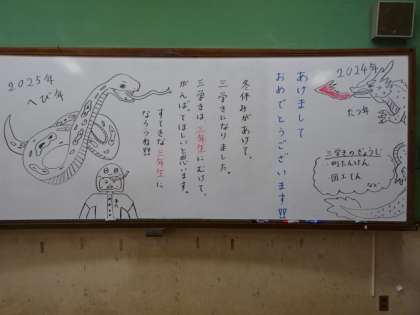 2024年
たつ年
三学きのぎょうじ
町たんけん
図工てん
など
あけまして
おめでとうございます!!
冬休みがあけて、
三学きになりました。
三学きは、三年生にむけて、
がんばってほしいと思います。
すてきな三年生に
なろうね!!
2025年
へび年